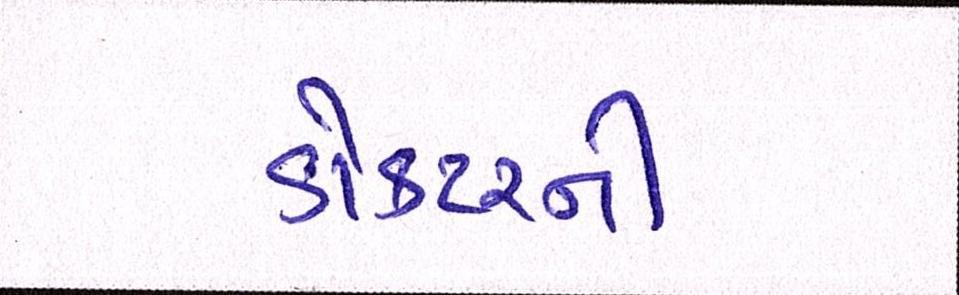 ડોકટરની